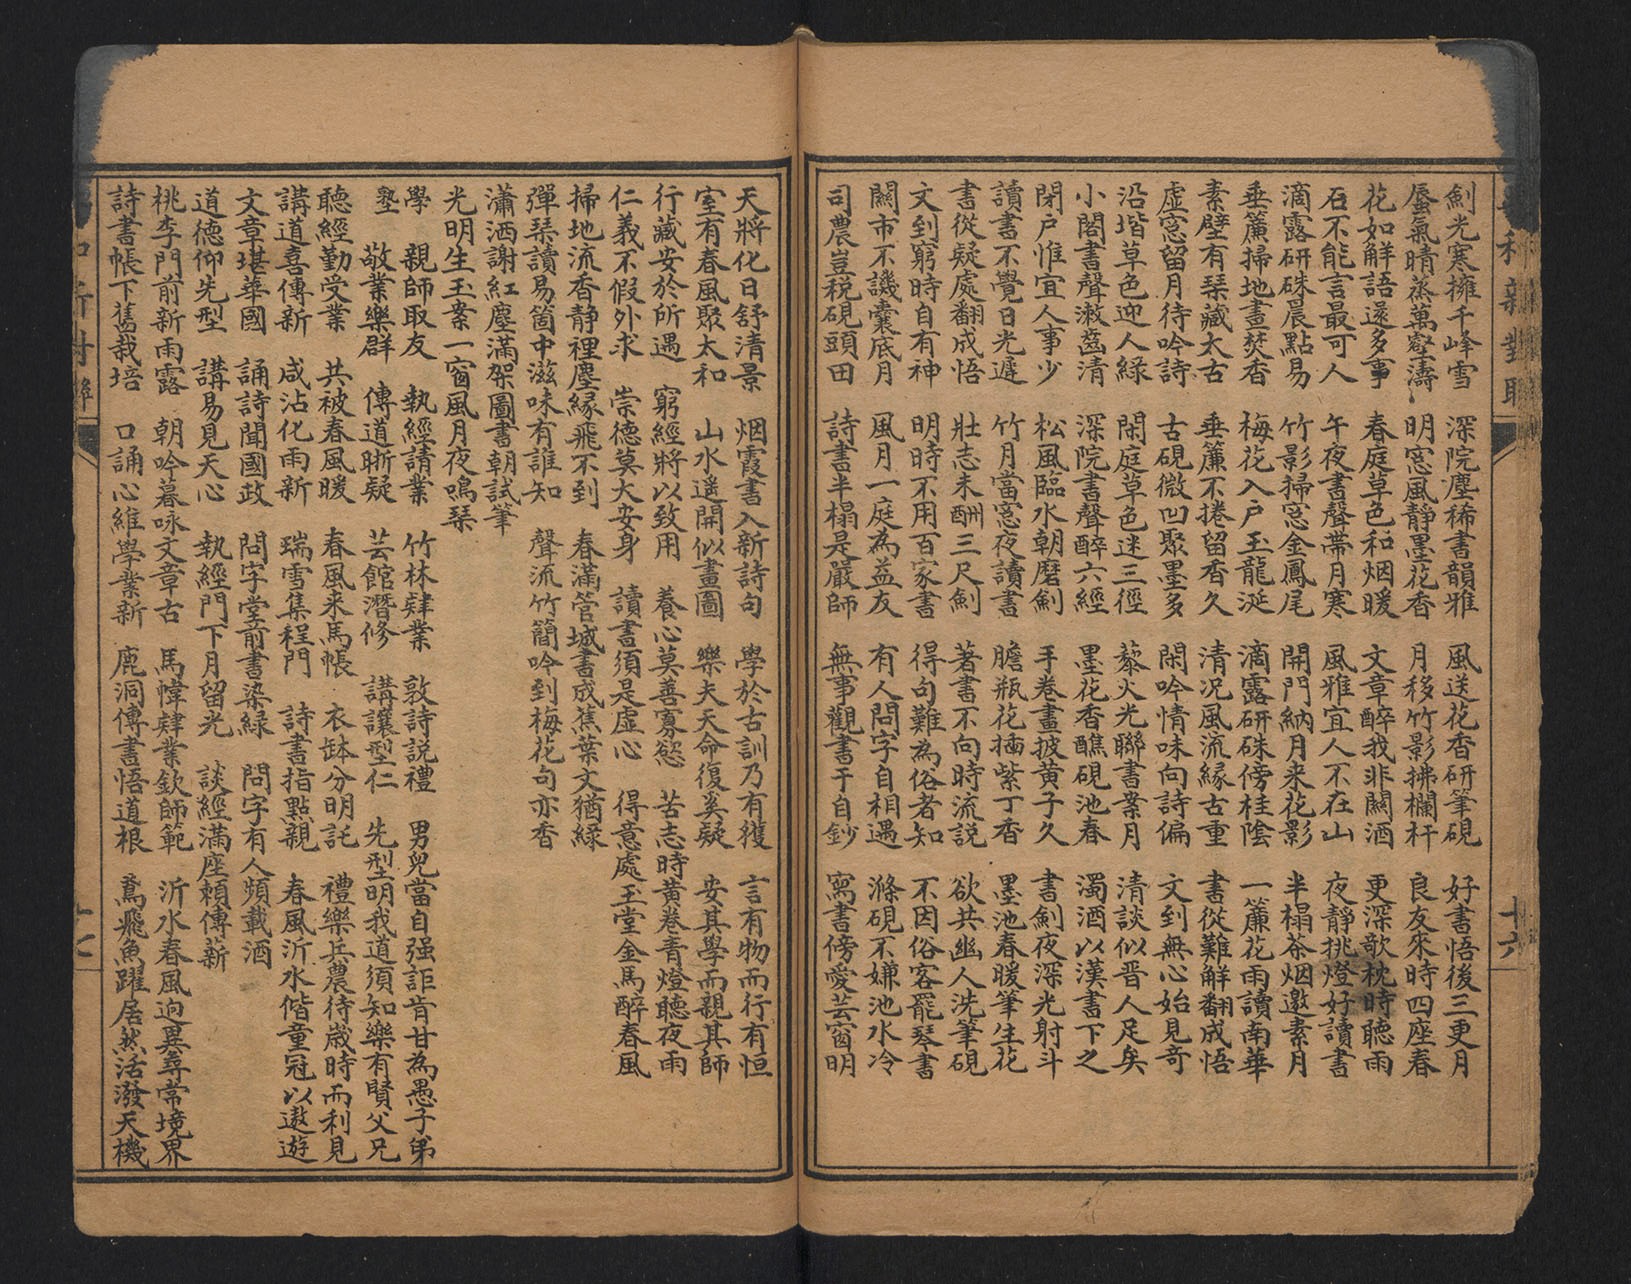 劍光寒擁千峰雪　深院塵稀書韻雅　風送花香研筆硯　好書悟後三更月
蜃氣晴蒸萬壑濤　明窓風靜墨花香　月移竹影拂欄杆　良友來時四座春
花如解語還多事　春庭草色和烟暖　文章醉我非關酒　更深欹枕時聽雨
石不能言最可人　午夜書聲帶月寒　風雅宜人不在山　夜靜挑燈好讀書
滴露研硃晨點易　竹影掃窓金鳳尾　開門納月来花影　半榻茶烟邀素月
垂簾掃地晝焚香　梅花入戶玉龍涎　滴露研硃傍桂陰　一簾花雨讀南華
素壁有琹藏太古　垂簾不捲留香久　清况風流緣古重　書從難解翻成悟
虛窓留月待吟詩　古硯微凹聚墨多　閑吟情味向詩偏　文到無心始見竒
沿堦草色迎人緑　閑庭草色迷三徑　藜火光聯書業月　清談似晋人足矣
小閣書聲漱齒清　深院書聲醉六經　墨花香醮硯池春　濁酒以漢書下之
閉户惟宜人事少　松風臨水朝磨劍　手卷晝披黄子久　書劍夜深光射斗
讀書不覺日光遲　竹月當窓夜讀書　膽瓶花插紫丁香　墨池春暖筆生花
書從疑處翻成悟　壯志未酬三尺劍　著書不向時流説　欲共幽人洗筆硯
文到窮時自有神　明時不用百家書　得句難為俗者知　不因俗客罷琴書
關市不譏囊底月　風月一庭為益友　有人問字自相遇　滌硯不嫌池水冷
司農豈税硯頭田　詩書半榻是嚴師　無事觀書手自鈔　寫書傍愛芸窗明
十六
天將化日舒清景　烟霞書入新詩句　學於古訓乃有獲　言有物而行有恒
室有春風聚太和　山水遥開似畫圖　樂夫天命復奚疑　安其學而親其師
行藏安於所遇　窮經將以致用　養心莫善寡慾　苦志時黄卷青燈聽夜雨
仁義不假外求　崇德莫大安身　讀書須是虛心　得意處玉堂金馬醉春風
掃地流香静裡塵緣飛不到　春滿管城書成蕉葉文猶緑
彈琹讀易箇中滋味有誰知　聲流竹簡吟到梅花句亦香
瀟洒謝紅塵滿架圖書朝試筆
光明生玉案一窗風月夜鳴琹
學　親師取友　執經請業　竹林肄業　敦詩説禮　男兒當自强詎肯甘為愚子弟
塾　敬業樂群　傳道晰疑　芸館潛修　講讓型仁　先型明我道須知樂有賢父兄
聽經勤受業　共被春風暖　春風来馬帳　衣鉢分明託　禮樂兵農待歲時而利見
講道喜傳新　咸沾化雨新　瑞雪集程門　詩書指點親　春風沂水偕童冠以遨遊
文章堪華國　誦詩聞國政　問字堂前書染緑　問字有人頻載酒
道德仰先型　講易見天心　執經門下月留光　談經滿座賴傳薪
桃李門前新雨露　朝吟暮咏文章古　馬幃肄業欽師範　沂水春風迥異尋常境界
詩書帳下舊栽培　口誦心維學業新　鹿洞傳書悟道根　鳶飛魚躍居然活潑天機